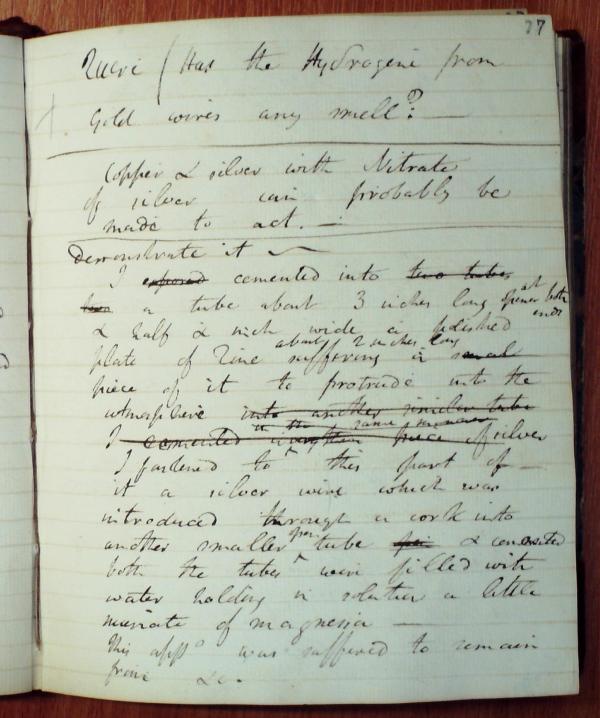 77
Queri / Has the Hydrogene from
Gold wires any smell? —
Copper & silver with Nitrate
of silver can probably be
made to act. —
Demonstrate it
I exposed cemented into two tubes
a tube about 3 inches long open at both ends
& half a inch wide a polished
plate of Zinc about 2 inches long suffering a smal
piece of it to protrude into the
atmosphere into another similar tube
in the same manner
I cemented another piece of silver
I fastened to this part of
it a silver wire which was
introduced through a cork into
another smaller open tube & connected
both the tubes were filled with
water holding in solution a little
muriate of magnesia —
This appo was suffered to remain
from &c.